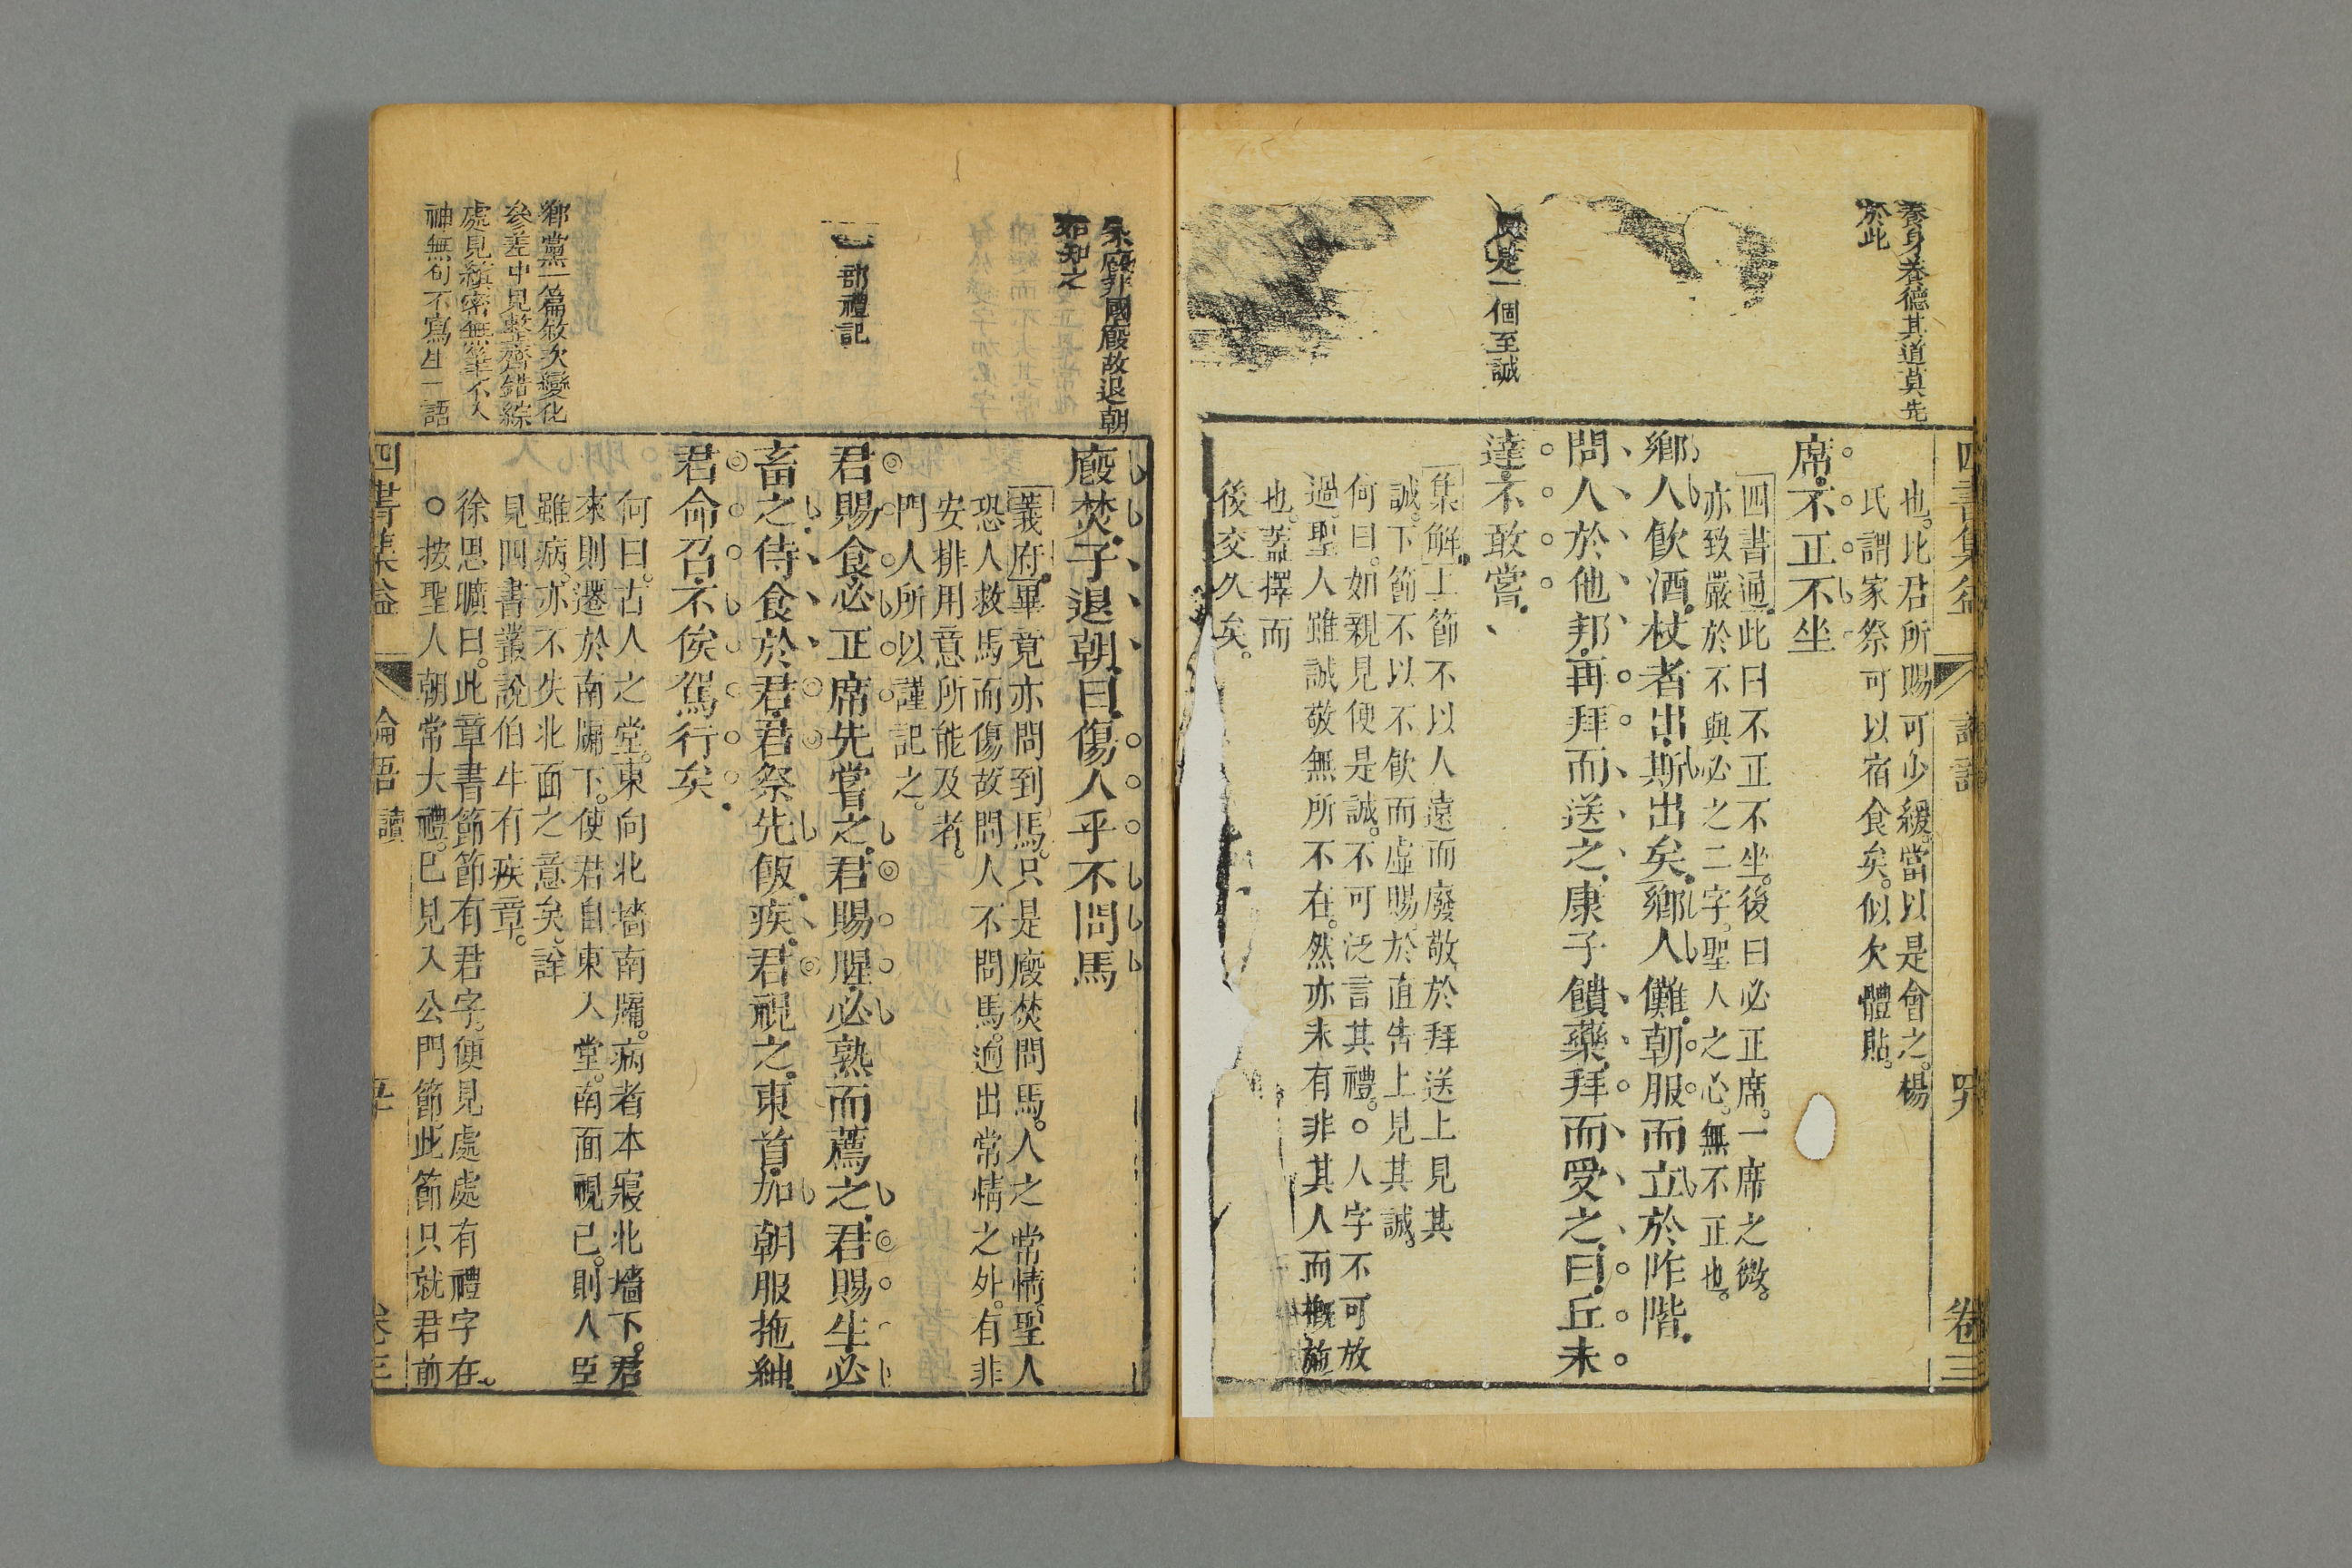 養身養德其道莫先
於此
是一個至誠
四書集益
論語
卷三
也。此君所賜可少緩。當以是會之。楊
氏謂家祭可以宿食矣。似欠體貼。
席。不正不坐
四書通。此曰不正不坐。後曰必正席。一席之微。
亦致嚴於不與必之二字。聖人之心。無不正也。
鄉人飲酒。杖者出斯出矣。鄉人儺。朝服而立於阼階。
問人於他邦。再拜而送之。康子饋藥。拜而受之。曰。丘未
達。不敢嘗。
集解。上節不以人遠而廢敬。於拜送上見其
誠。下節不以不飲而虛賜。於直告上見其誠。
何曰。如親見便是誠。不可泛言其禮。○人字不可放
過。聖人雖誠敬無所不在。然亦未有非其人而槪施
也。蓋擇而
後交久矣。
家廄非國廄故退朝
始知之
部禮記
鄉黨一篇敘次變化
參差中見整齊錯綜
處見縝密無筆不入
神無句不寫生一語
廄焚。子退朝。曰。傷人乎。不問馬
義府。畢竟亦問到馬。只是廄焚問馬。人之常情。聖人
恐人救馬而傷。故問人不問馬。逈出常情之外。有非
安排用意所能及者。
門人所以謹記之。
君賜食。必正席先嘗之。君賜腥。必熟而薦之。君賜生。必
畜之。侍食於君。君祭先飯。疾。君視之。東首。加朝服拖紳。
君命召。不俟駕行矣。
何曰。古人之堂。東向北墻南牖。病者本寢北墻下。君
來則遷於南牖下。使君自東入堂。南面視己。則人臣
雖病。亦不失北面之意矣。詳
見四書叢說伯牛有疾章。
徐思曠曰。此章書節節有君字。便見處處有禮字在。
○按聖人朝常大禮。已見入公門節。此節只就君前
四書集益
論語 讀
五十
卷三